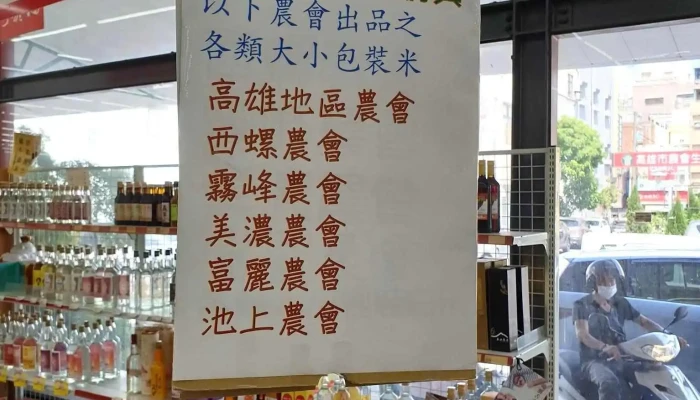 以下農會出品之
各類大小包裝米
高雄地區農會
西螺農會
霧峰農會
美濃農會
富麗農會
池上農會
高雄市農會生